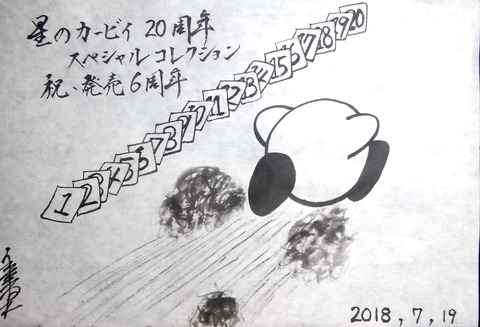 星のカービィ 20周年
スペシャルコレクション
祝、発売6周年
1 2 3 4 5 6 7 8 9 10 11 12 13 14 15 16 17 18 19 20
2018,7,19